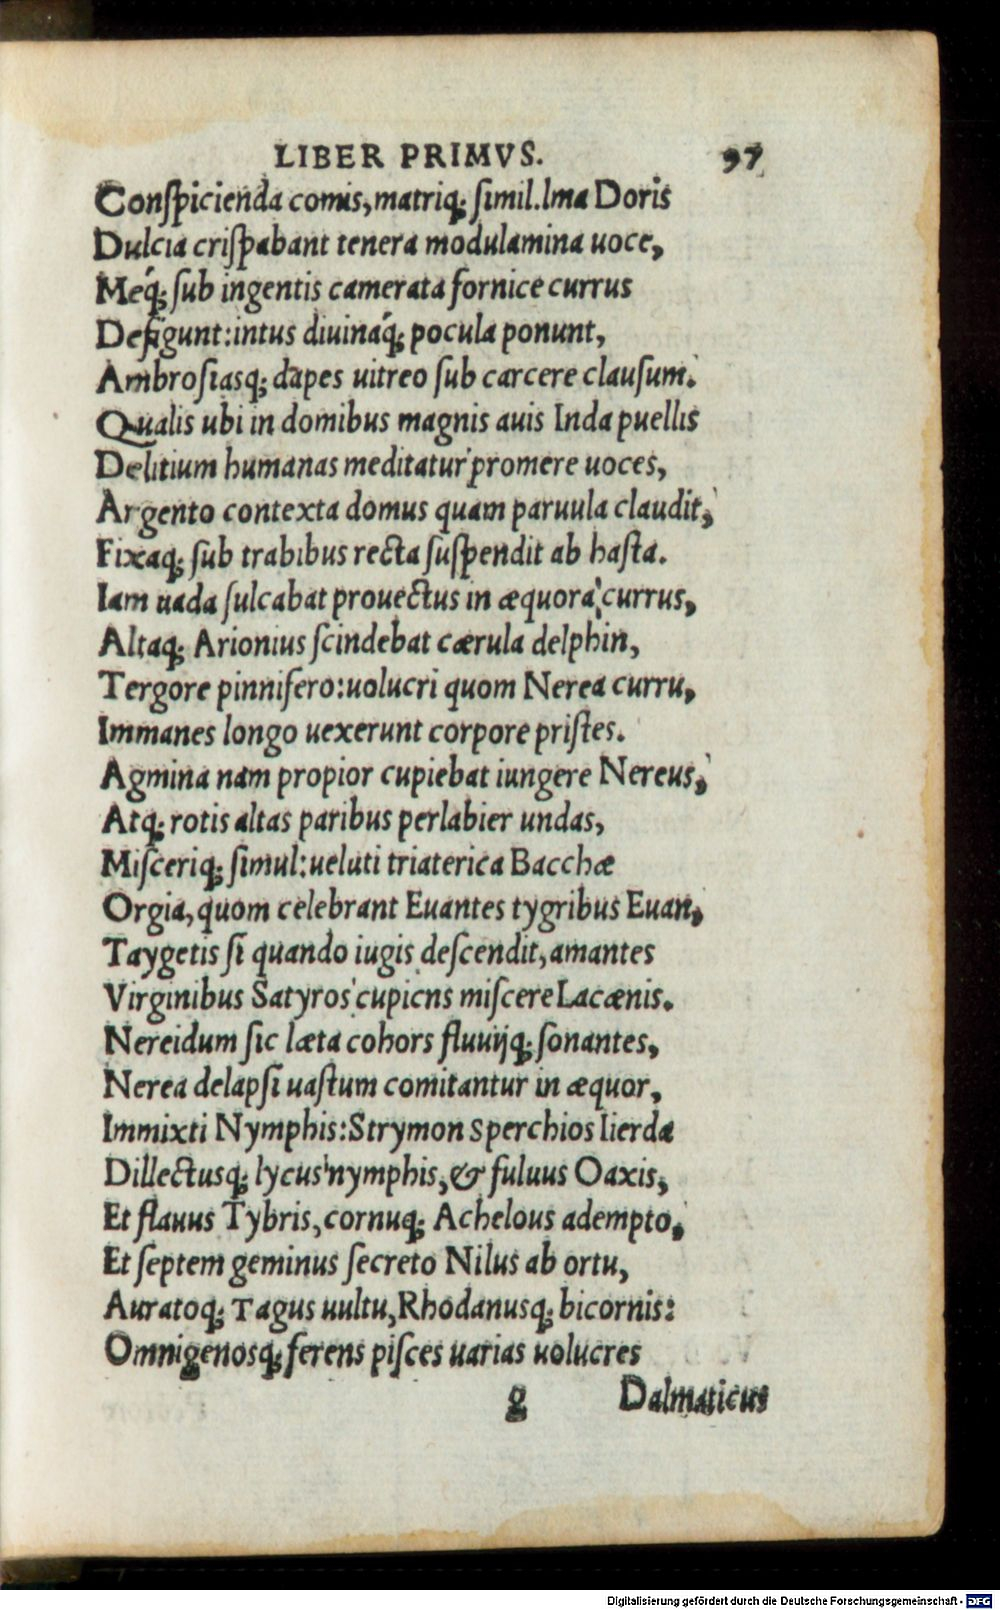 LIBER PRIMVS. 97
Conſpicienda comis, matriq; ſimil.lma Doris
Dulcia criſpabant tenera modulamina uoce,
Meq́; ſub ingentis camerata fornice currus
Defigunt: intus diuinaq́; pocula ponunt,
Ambroſiasq; dapes uitreo ſub carcere clauſum.
Qualis ubi in domibus magnis auis Inda puellis
Delitium humanas meditatur promere uoces,
Argento contexta domus quam paruula claudit,
Fixaq; ſub trabibus recta ſuſpendit ab haſta.
Iam uada ſulcabat prouectus in æquora currus,
Altaq; Arionius ſcindebat cærula delphin,
Tergore pinnifero: uolucri quom Nerea curru,
Immanes longo uexerunt corpore priſtes.
Agmina nam propior cupiebat iungere Nereus,
Atq; rotis altas paribus perlabier undas,
Miſceriq; ſimul: ueluti triaterica Bacchæ
Orgia, quom celebrant Euantes tygribus Euan,
Taygetis ſi quando iugis deſcendit, amantes
Virginibus Satyros cupiens miſcere Lacænis.
Nereidum ſic læta cohors fluuijq; ſonantes,
Nerea delapſi uaſtum comitantur in æquor,
Immixti Nymphis: Strymon Sperchios Iierda
Dillectusq; lycus nymphis, & fuluus Oaxis,
Et flauus Tybris, cornuq; Achelous adempto,
Et ſeptem geminus ſecreto Nilus ab ortu,
Auratoq; Tagus uultu, Rhodanusq; bicornis:
Omnigenosq; ferens piſces uarias uolucres
g Dalmaticus
Digitalisierung gefördert durch die Deutsche Forschungsgemeinschaft - DFG